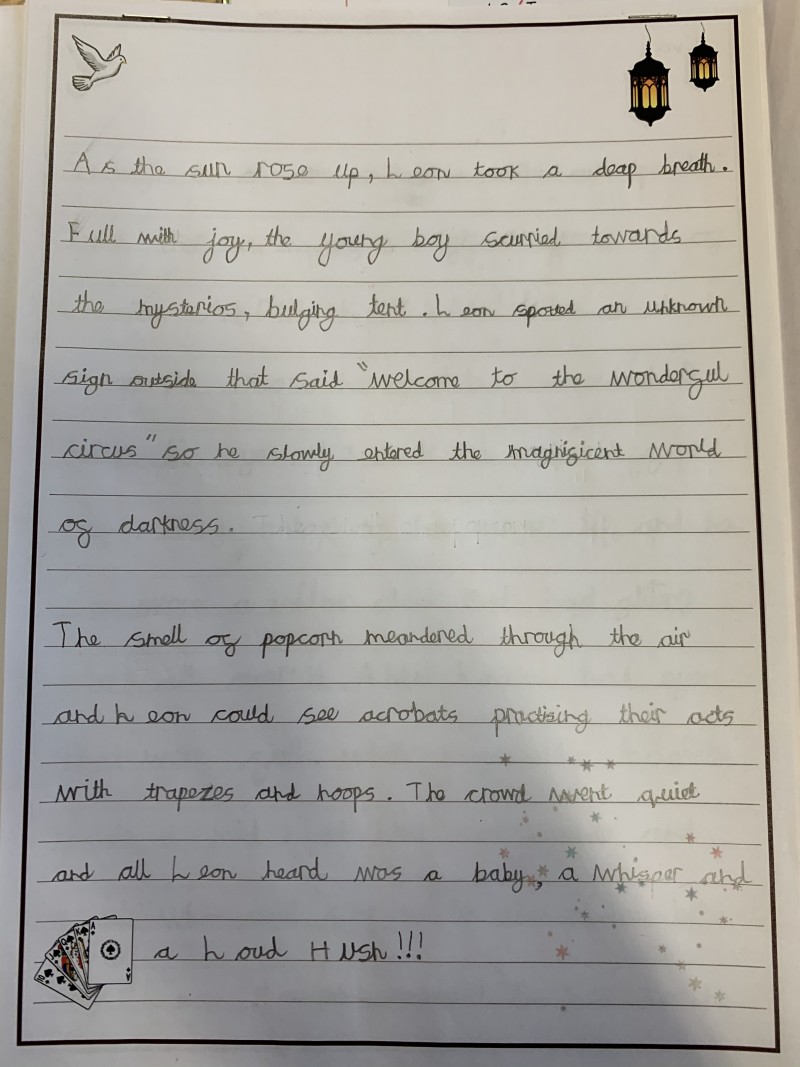 As the sun rose up, Leon took a deap breath.
Full with joy, the young boy scurried towards
the mysterios, bulging tent. Leon spotted an unknown
sign outside that said "welcome to the wonderful
circus" so he slowly entered the magnificent world
of darkness.
The smell of popcorn meandered through the air
and Leon could see acrobats practising their acts
with trapezes and hoops. The crowd went quiet
and all Leon heard was a baby, a whisper and
a Loud Hush!!!